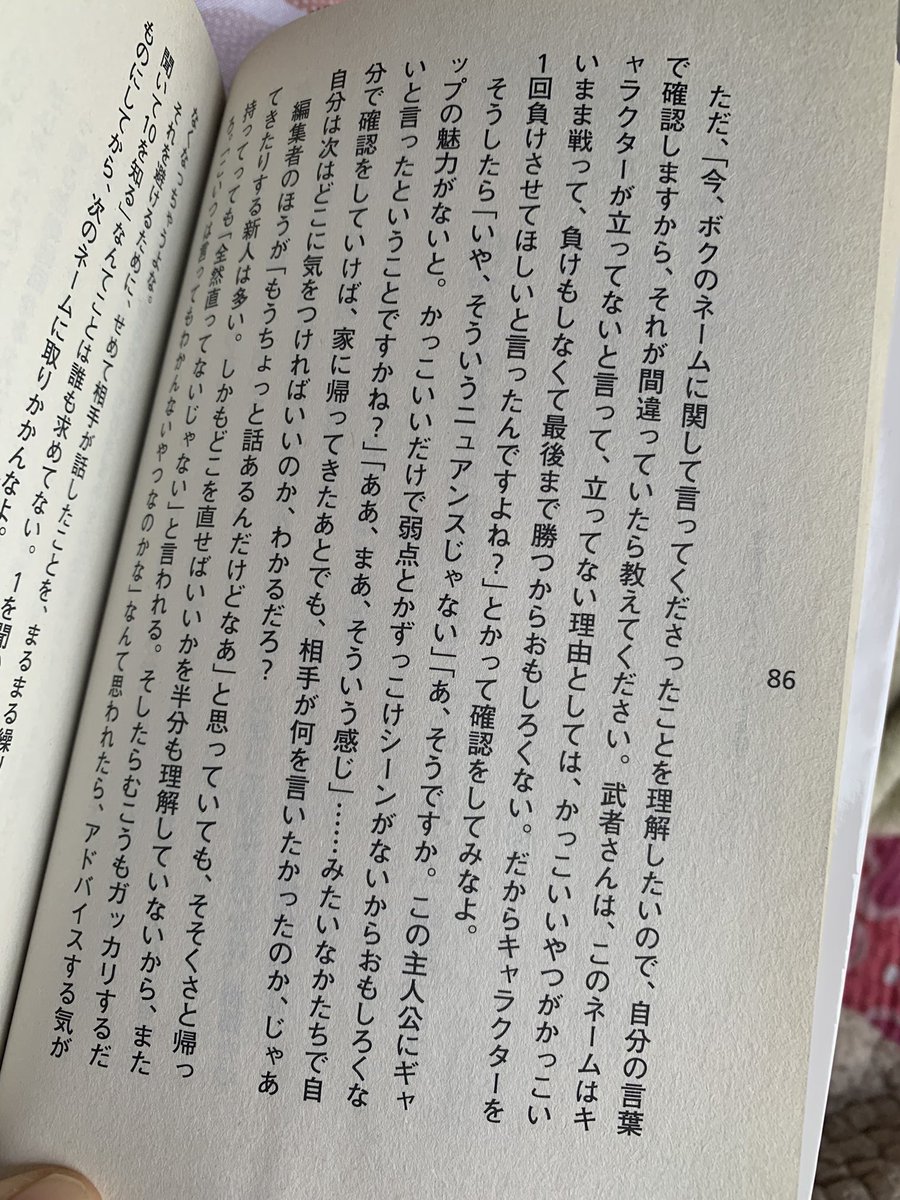 86
ただ、「今、ボクのネームに関して言ってくださったことを理解したいので、自分の言葉
で確認しますから、それが間違っていたら教えてください。武者さんは、このネームはキ
ャラクターが立ってないと言って、立ってない理由としては、かっこいいやつがかっこい
いまま戦って、負けもしなくて最後まで勝つからおもしろくない。だからキャラクターを
1回負けさせてほしいと言ったんですよね?」とかって確認をしてみなよ。
そうしたら「いや、そういうニュアンスじゃない」「あ、そうですか。この主人公にギャ
ップの魅力がないと。かっこいいだけで弱点とかずっこけシーンがないからおもしろくな
いと言ったということですかね?」「ああ、まあ、そういう感じ」……みたいなかたちで自
分で確認をしていけば、家に帰ってきたあとでも、相手が何を言いたかったのか、じゃあ
自分は次はどこに気をつければいいのか、わかるだろ?
編集者のほうが「もうちょっと話あるんだけどなあ」と思っていても、そそくさと帰っ
てきたりする新人は多い。しかもどこを直せばいいかを半分も理解していないから、また
持ってっても「全然直ってないじゃない」と言われる。そしたらむこうもガッカリするだ
ろ。「こいつは言ってもわかんないやつなのかな」なんて思われたら、アドバイスする気が
なくなっちゃうよな。
それを避けるために、せめて相手が話したことを、まるまる繰り
聞いて10を知る」なんてことは誰も求めてない。1を聞い
ものにしてから、次のネームに取りかかんなよ。